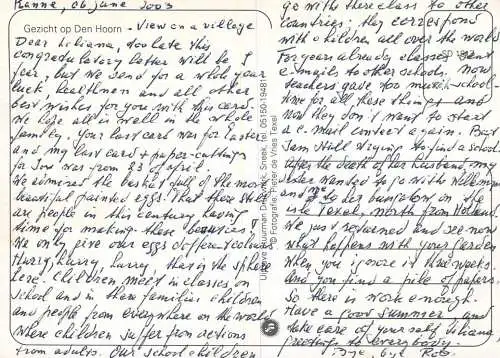 Ranna, 06 june 2003
Gezicht op Den Hoorn - View on a village
Dear Liliana, too late this
congradulatory letter will be I
fear, but we send for a whole year
luck, healthness and all other
best wishes for you with this card.
We hope all is well in the whole
family. Your last card was for Easter
and my last card + paper-cuttings
for You was from 23 of april.
We admired the basket full of the most
beautiful painted eggs. That there still
are people in this century having
time for making these beauties!
We only give our eggs different colours
Hurry, hurry, hurry, that is the sphere
here. Children meet in classes on
school and in there families children
and people from everywhere on the world
where children suffer from actions
from adults. Our school children
Uitgave Buurman Sneek, tel. (05150-19481)
© Fotografie: Pieter de Vries Texel
go with there class to other
countries; they correspond
with children all over the world.
For years already classes sent
e-mails to other schools. Now
teachers gave too much in school-
time for all these things and
now they don't want to start
a e-mail contact again. But
I am still trying to find a school.
After the death of her husband, my
sister wanted to go with Willemijn
and me to her bungalow on the
isle Texel, north from Holland
We just returned and see now
what happens with your garden
when you ignore it three weeks.
And you find a pile of papers.
So there is work enough.
Have a good summer and
take care of yourself, Liliana
greetings to everybody.
Bye, bye Rob.